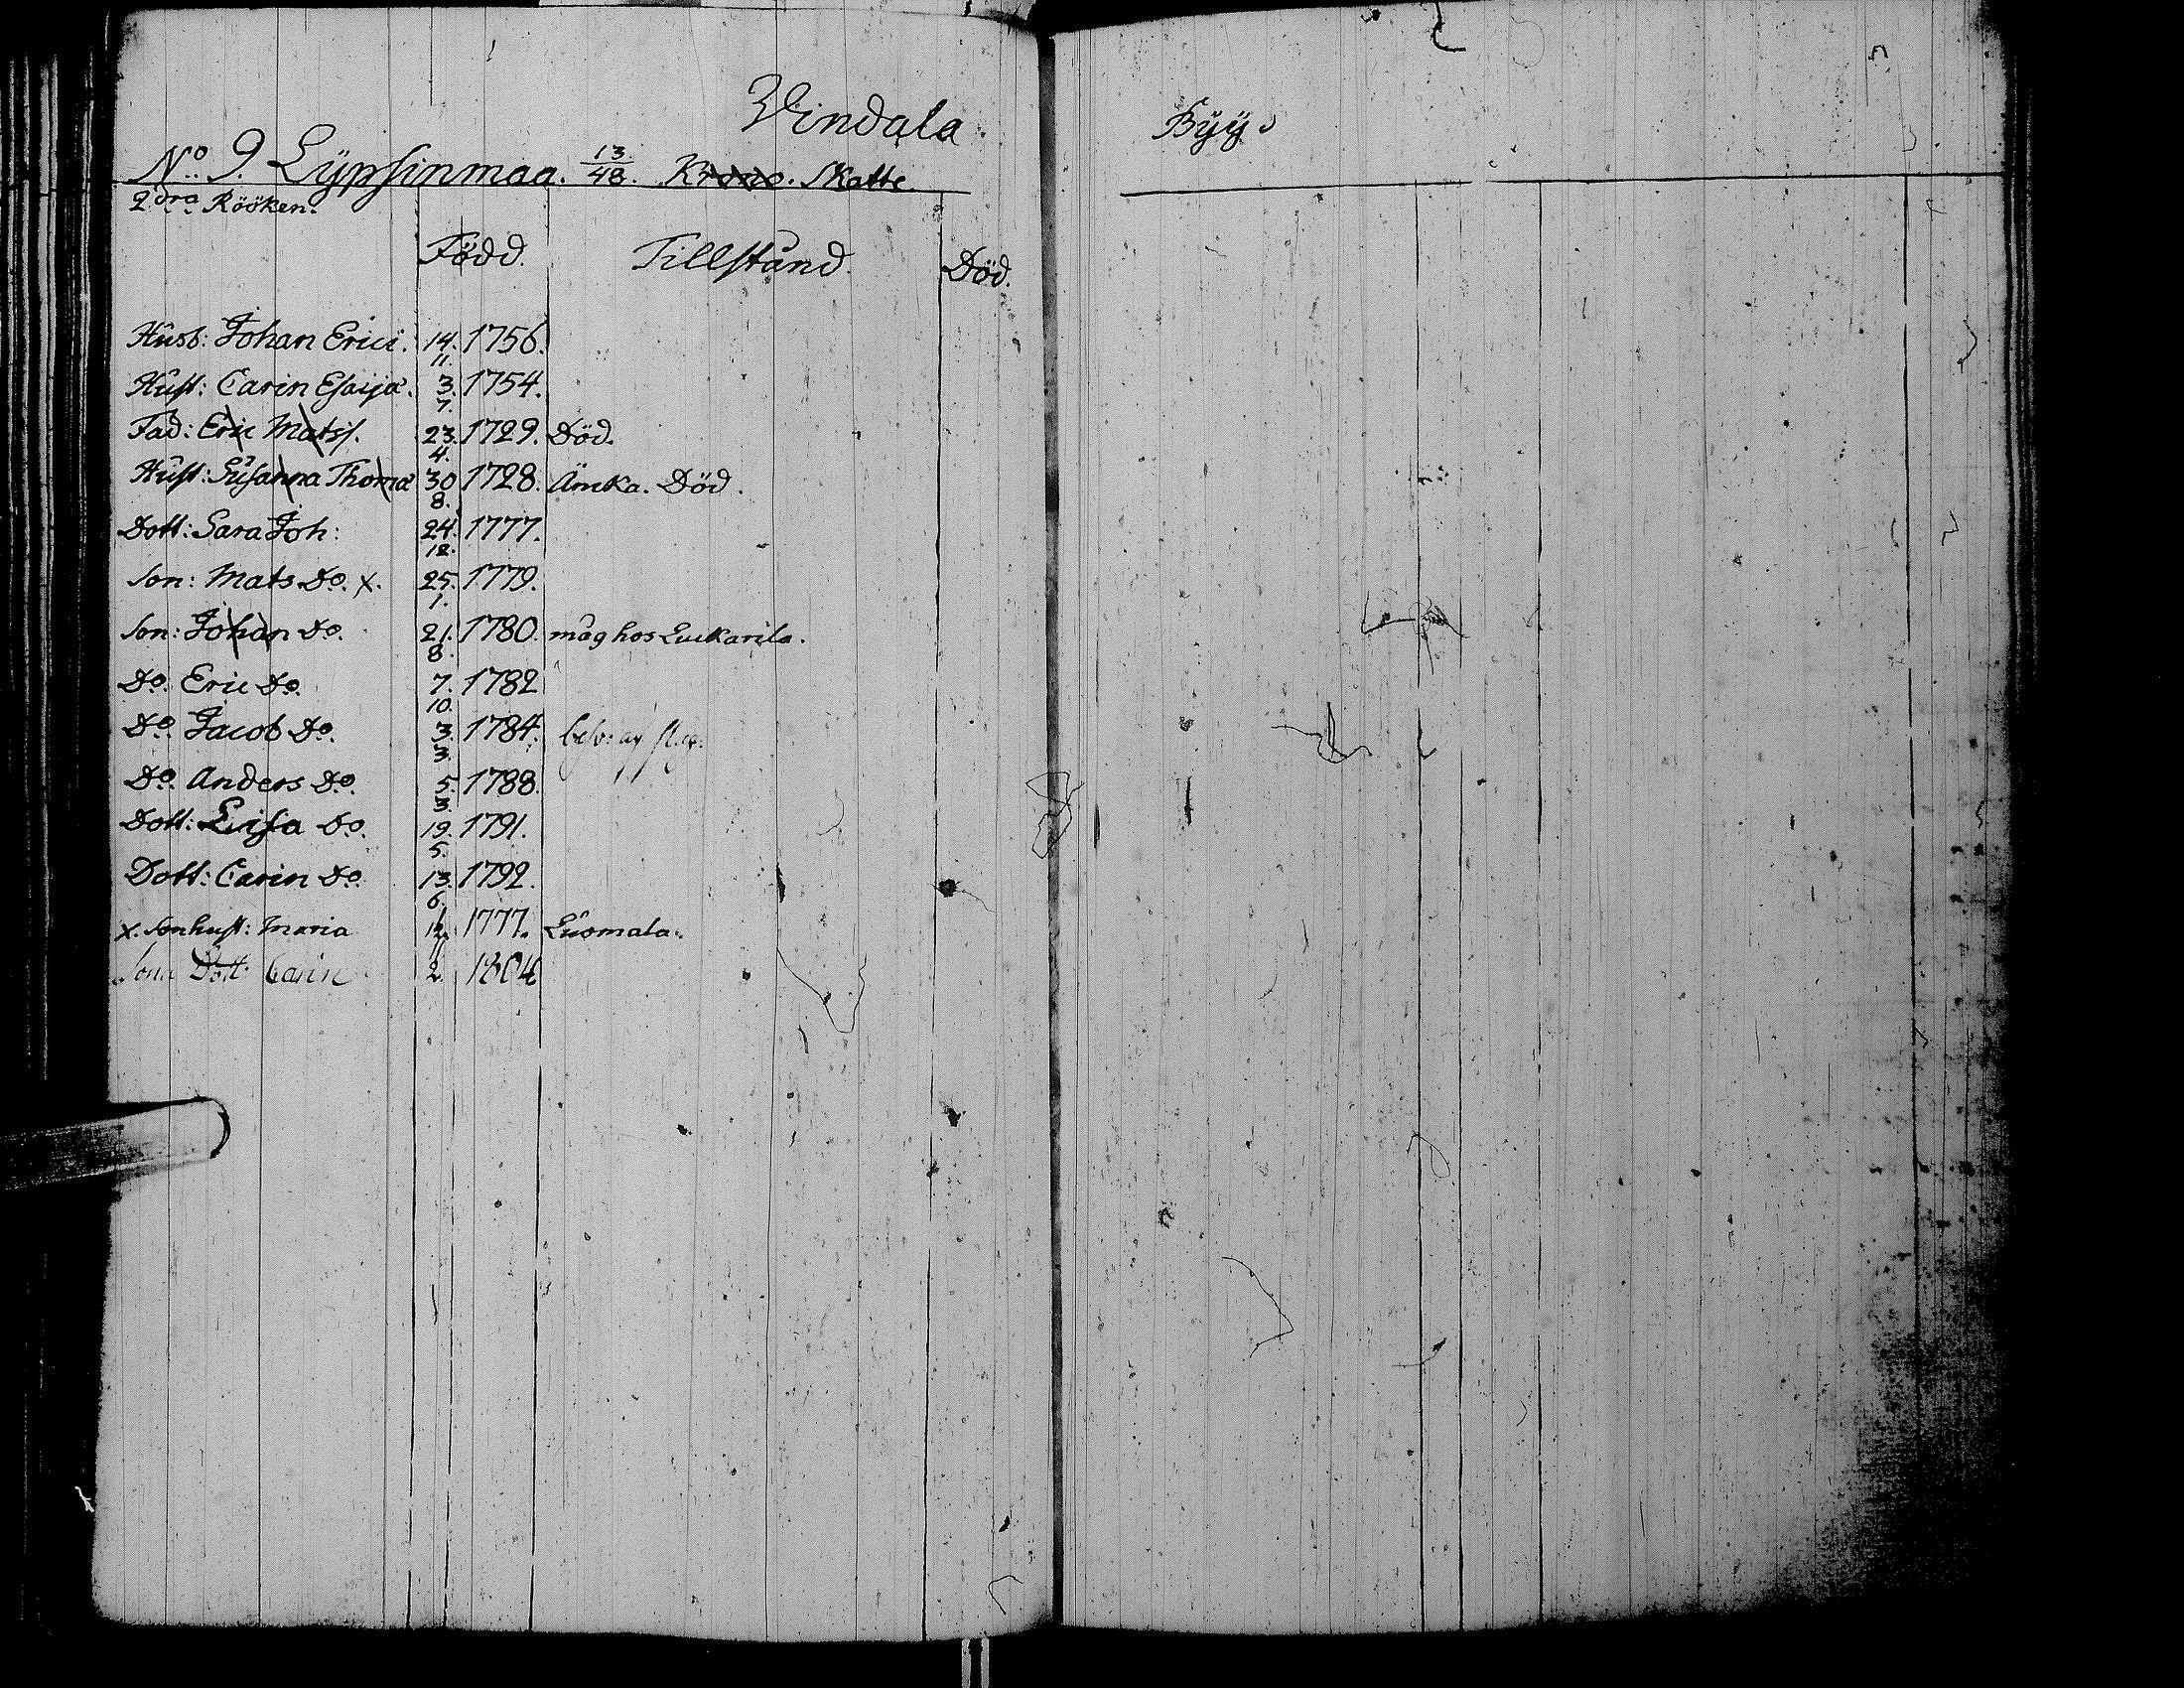 Vindala Byy.
No. 9. Lÿpsinmaa. 13/48. Krono. Skatte.
2dra Rööken.
Född. Tillstånd. Död.
Husb: Johan Erici. 14. 11. 1756.
Hust: Carin Esaijæ. 3. 7. 1754.
Fad: Eric Matss. 23. 4. 1729. Död.
Hust: Susanna Thomæ 30 8. 1728. Änka. Död.
Dott: Sara Joh: 24. 12. 1777.
Son: Mats Do. x. 25. 1. 1779.
Son: Johan Do. 21. 8. 1780. måg hos Luckarila.
Do. Eric Do. 7. 10. 1782
Do. Jacob Do. 3. 3. 1784.
Do. Anders Do. 5. 3. 1788.
Dott: Lisa Do. 19. 5. 1791.
Dott: Carin Do. 13. 6. 1792.
x. Sonhust: Maria 1777. Luomala.
Dott Carin 2. 1804